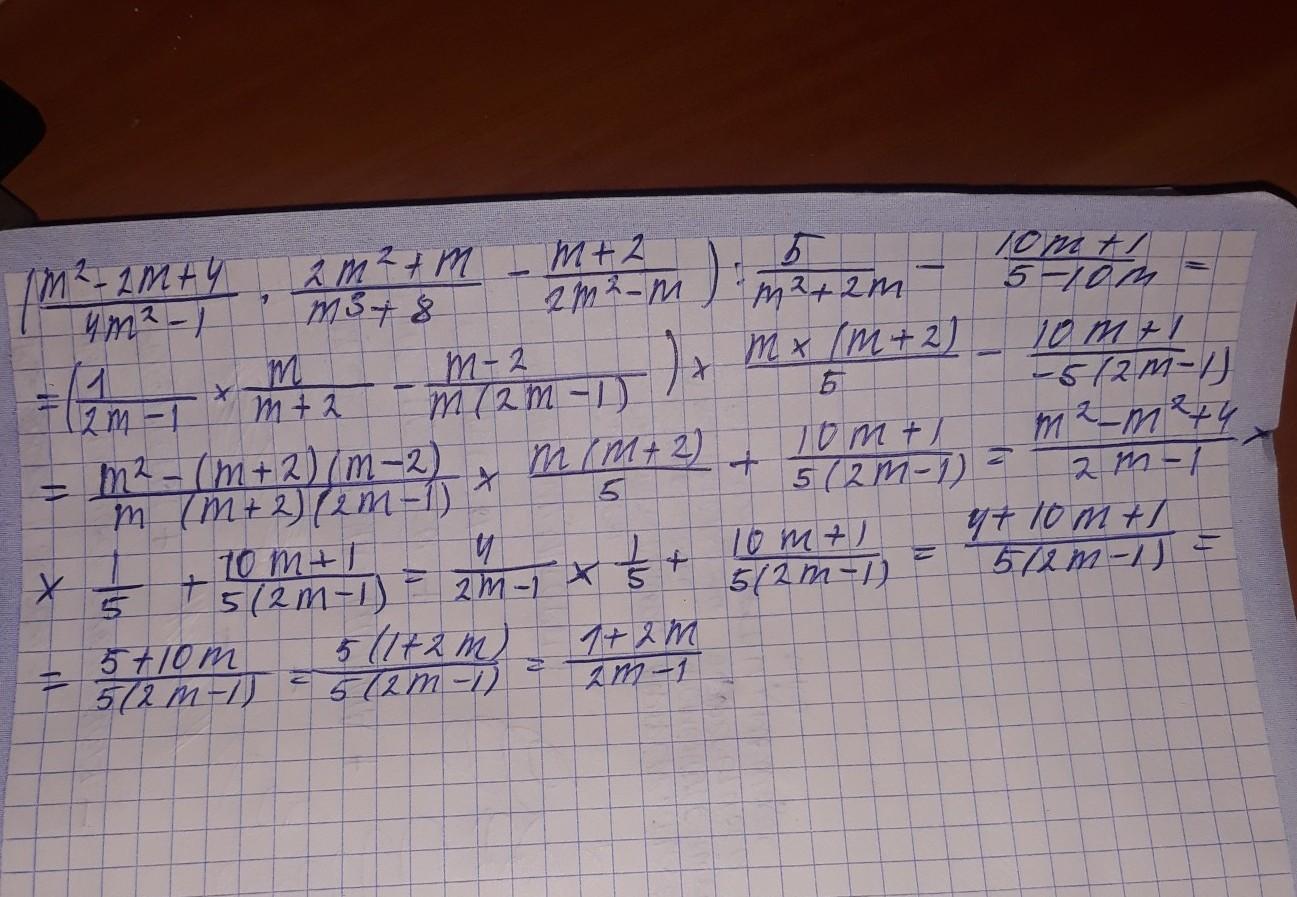 (m²-2m+4/4m²-1 · 2m²+m/m³+8 - m+2/2m²-m) : 5/m²+2m - 10m+1/5-10m =
=(1/2m-1 × m/m+2 - m-2/m(2m-1)) × m×(m+2)/5 - 10m+1/-5(2m-1)
= m²-(m+2)(m-2)/m(m+2)(2m-1) × m(m+2)/5 + 10m+1/5(2m-1) = m²-m²+4/2m-1 ×
× 1/5 + 10m+1/5(2m-1) = 4/2m-1 × 1/5 + 10m+1/5(2m-1) = 4+10m+1/5(2m-1) =
= 5+10m/5(2m-1) = 5(1+2m)/5(2m-1) = 1+2m/2m-1